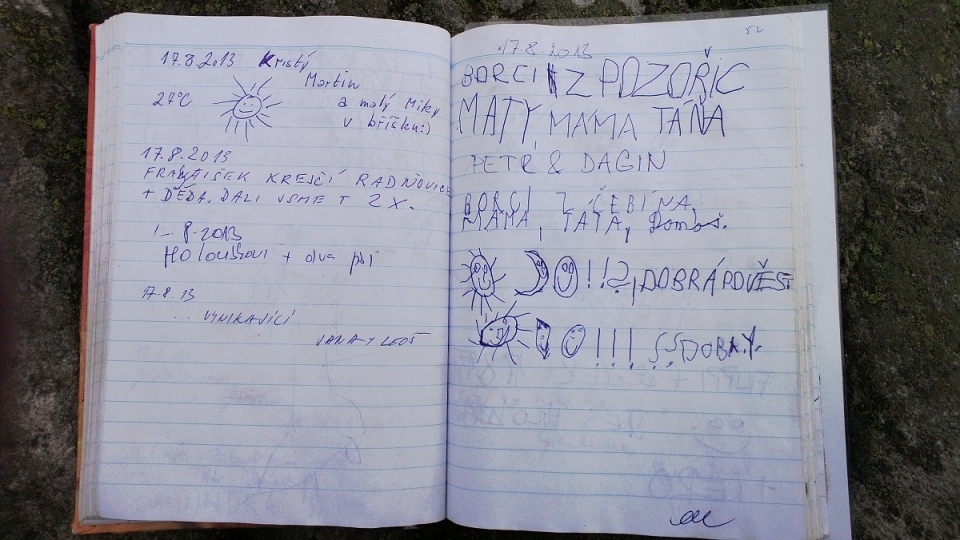 17.8.2013 Kristý
Martin
27°C a malý Miky
v bříšku:)
17.8.2013
FRANTIŠEK KREJČÍ RADŇOVICE
+ DĚDA. DALI JSME T 2 X.
8.2013
Holoušovi + dva psi
17.8.13
... VYNIKAJÍCÍ
JANA Y LEOŠ
52
17.8.2013
BORCI IZ POZOŘIC
MATY, MAMA TÁŇA
PETR & DAGIN
BORCI Z ČEBÍNA,
MAMA, TATA, Domoš.
!!?¡DOBRÁ POVĚST
!!! DOBRÝ.